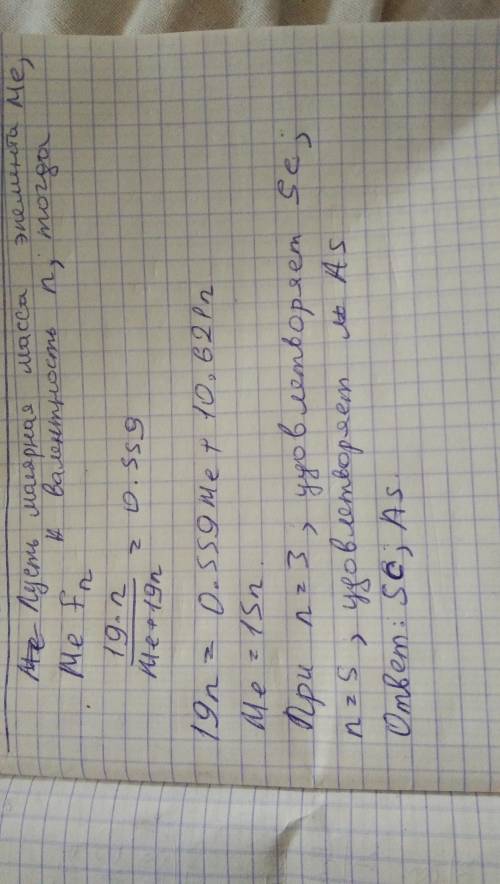 Пусть малярная масса элемента Me,
Me Fn и валентность n, тогда
19·n / Me+19n = 0.559
19n = 0.559 Me + 10.621n
Me = 15n.
При n=3, удовлетворяет Sc,
n=5, удовлетворяет As
Ответ: Sc, As.